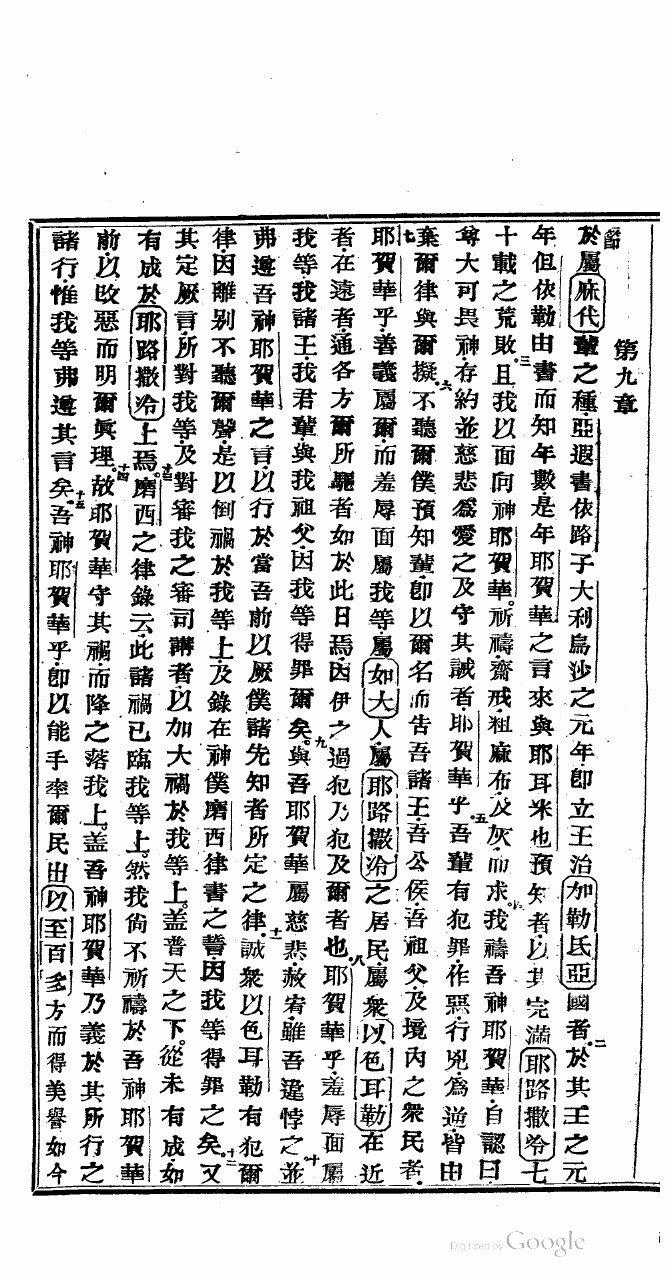 第九章
一節 於屬麻代輩之種亞遐書依路子大利烏沙之元年卽立王治加勒氏亞國者二於其王之元
年但依勒由書而知年數是年耶賀華之言來與耶耳米也預知者以其完滿耶路撒冷七
十載之荒敗三且我以面向神耶賀華祈禱齋戒粗麻布及灰而求四我禱吾神耶賀華自認曰
尊大可畏神存約並慈悲爲愛之及守其誡者耶賀華乎五吾輩有犯罪作惡行兇爲逆皆由
棄爾律與爾擬六不聽爾僕預知輩卽以爾名而告吾諸王吾公侯吾祖父及境內之衆民者
七耶賀華乎善義屬爾而羞辱面屬我等屬如大人屬耶路撒冷之居民屬衆以色耳勒在近
者在遠者通各方爾所驅者如於此日焉因伊之過犯乃犯及爾者也八耶賀華乎羞辱面屬
我等我諸王我君輩與我祖父因我等得罪爾矣九與吾耶賀華屬慈悲赦宥雖吾違悖之並十
弗遵吾神耶賀華之言以行於當吾前以厥僕諸先知者所定之律十一誠衆以色耳勒有犯爾
律因離別不聽爾聲是以倒禍於我等上及錄在神僕摩西律書之誓因我等得罪之矣十二又
其定厥言所對我等及對審我之審司講者以加大禍於我等上蓋普天之下從未有成如
有成於耶路撒冷上焉十三摩西之律錄云此諸禍已臨我等上然我尙不祈禱於吾神耶賀華
前以改惡而明爾眞理十四故耶賀華守其禍而降之落我上蓋吾神耶賀華乃義於其所行之
諸行惟我等弗遵其言矣十五吾神耶賀華乎卽以能手率爾民出以至百多方而得美譽如今
Digitized by Google